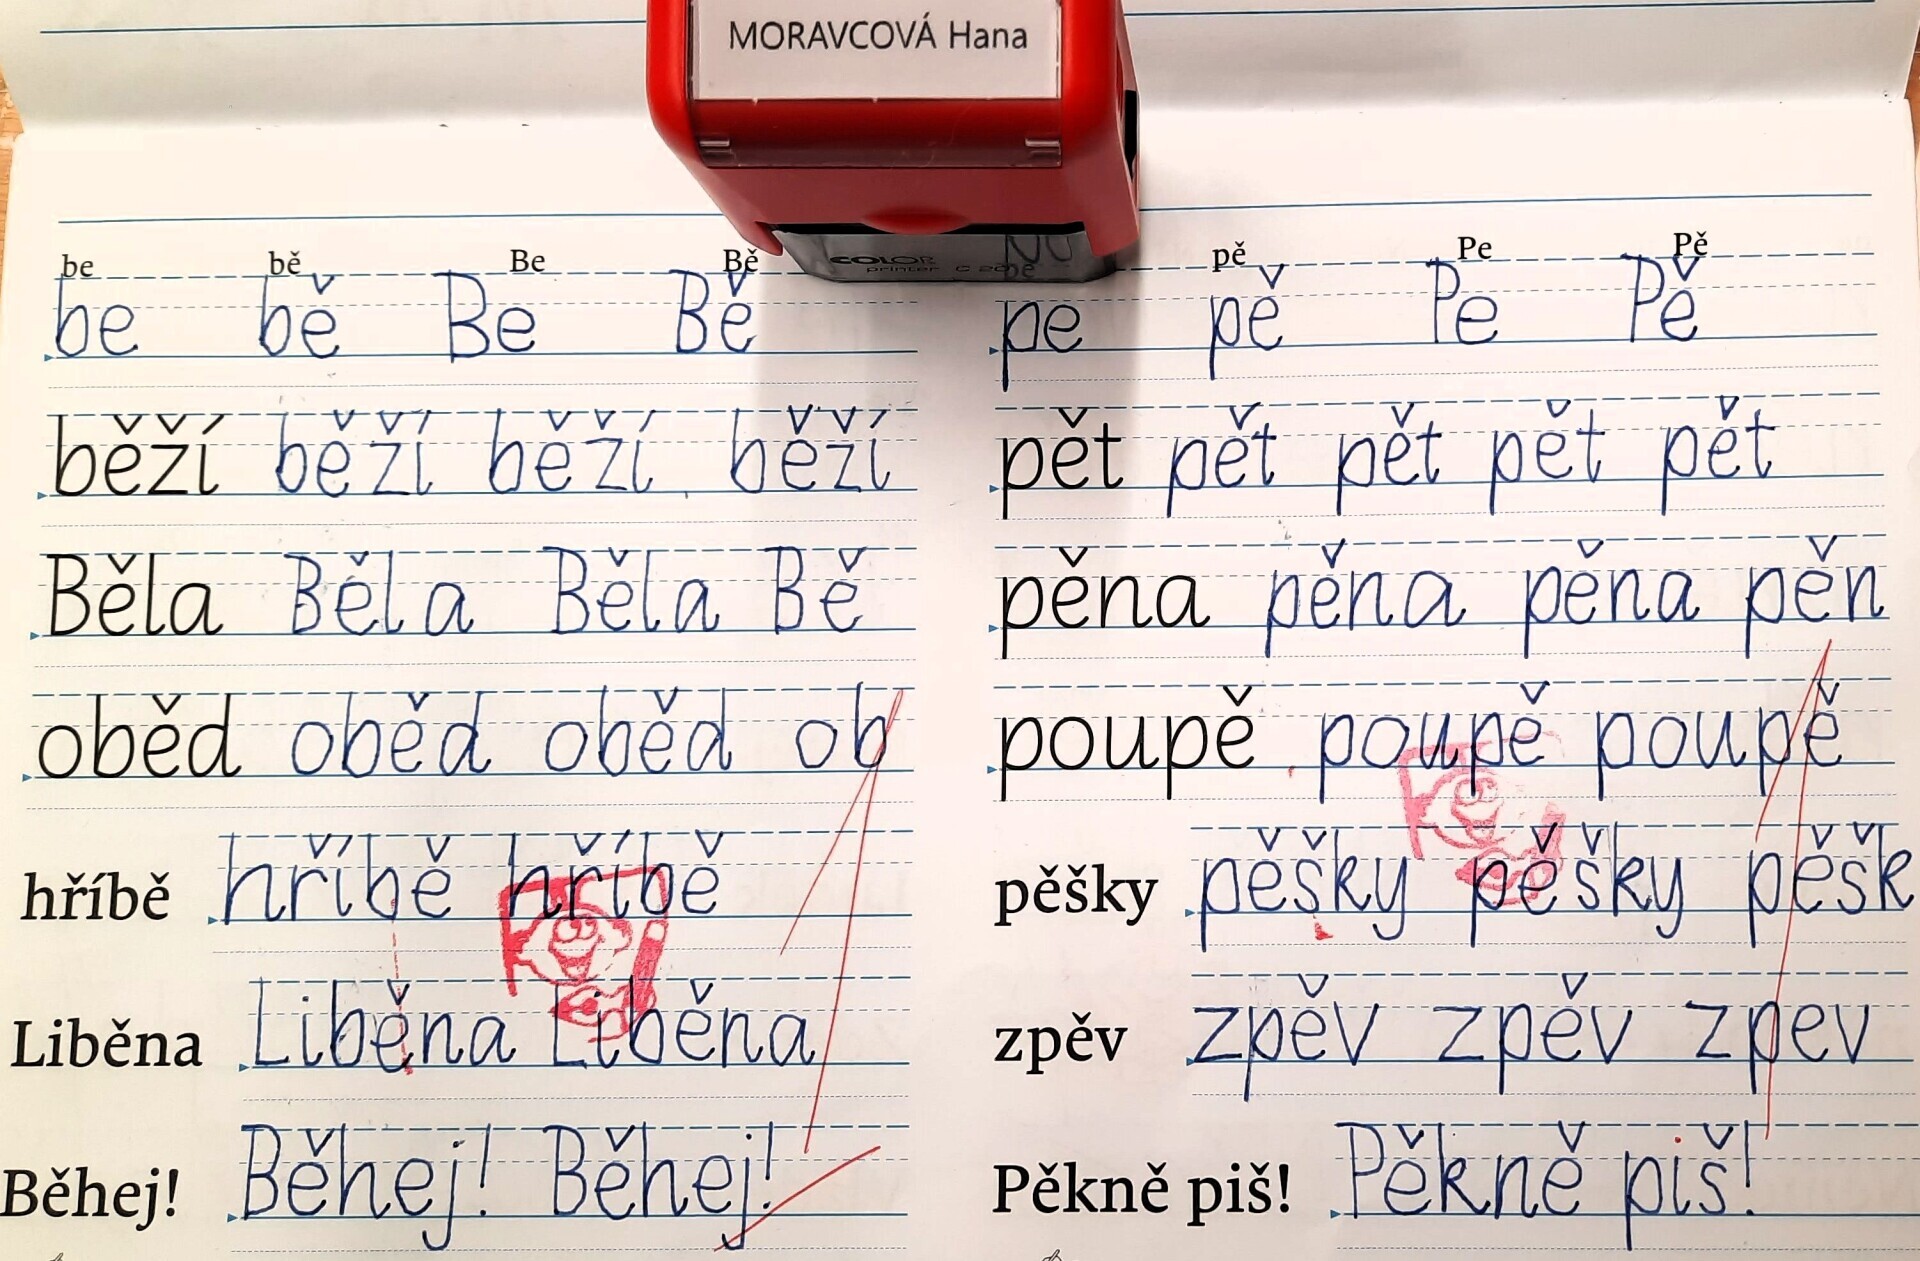 MORAVCOVÁ Hana
COLOP
printer C 20
be bě Be Bě
be bě Be Bě
běží běží běží běží
Běla Běla Běla Bě
oběd oběd oběd ob
hříbě hříbě hříbě
Liběna Liběna Liběna
Běhej! Běhej! Běhej!
pe pě Pe Pě
pe pě Pe Pě
pět pět pět pět pět
pěna pěna pěna pěn
poupě poupě poupě
pěšky pěšky pěšky pěšk
zpěv zpěv zpěv zpev
Pěkně piš! Pěkně piš!